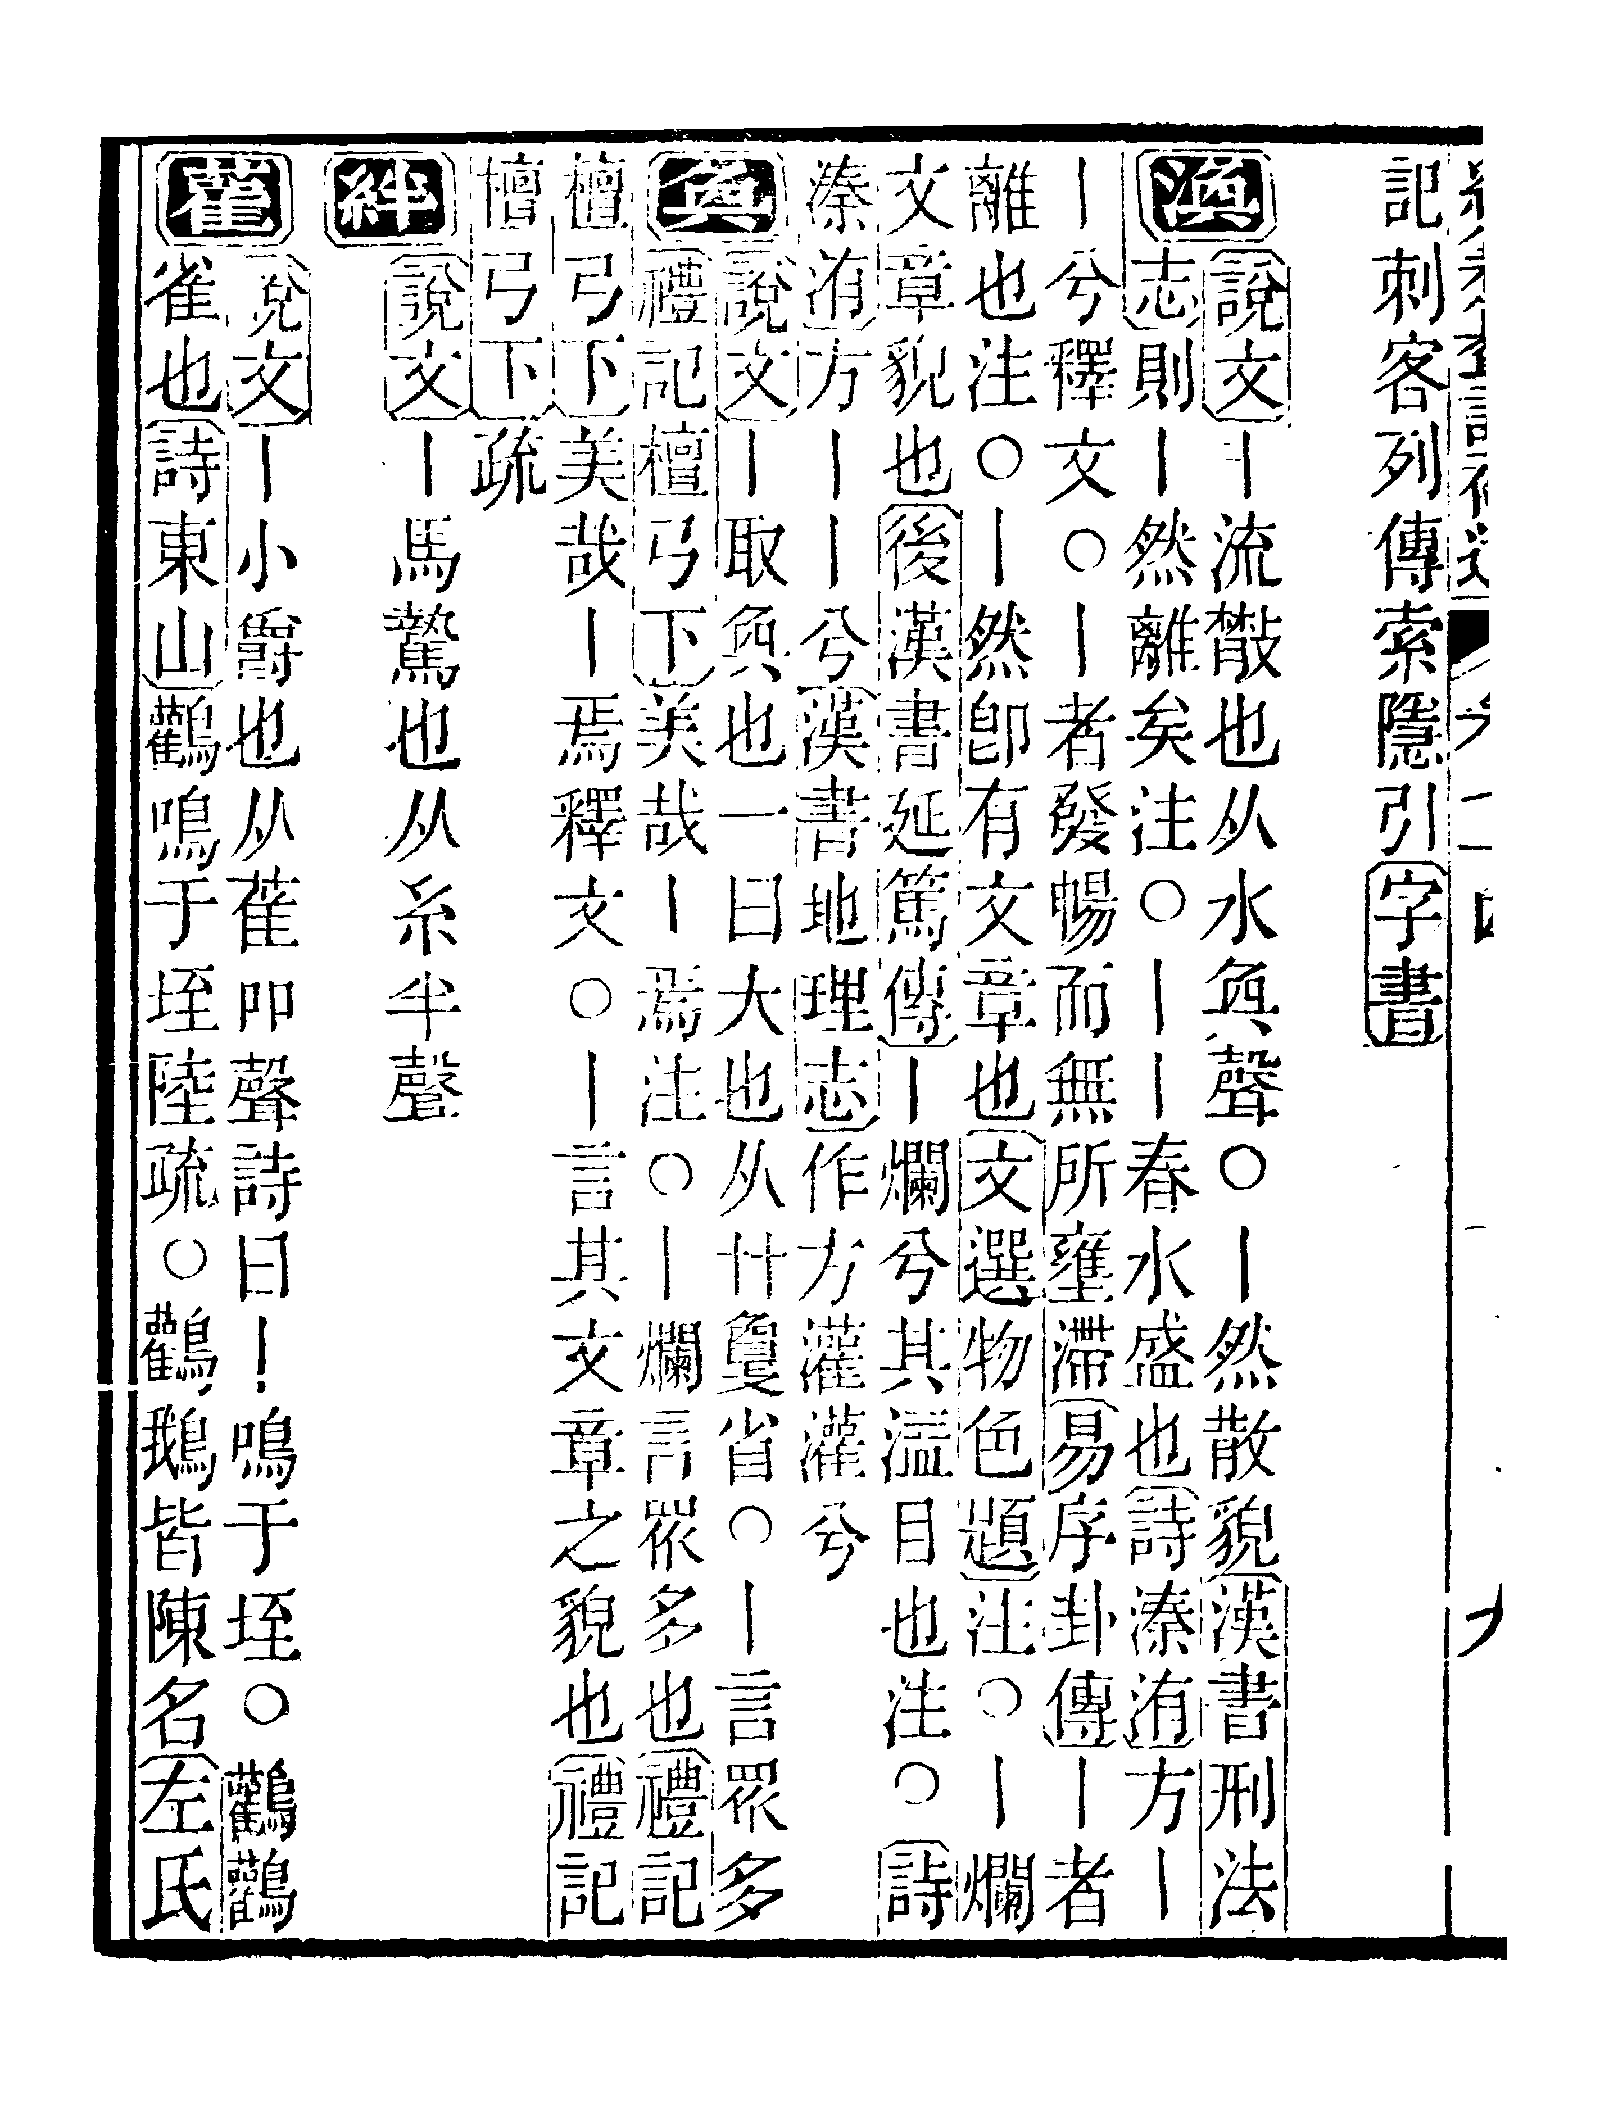 記刺客列傳索隱引字書
渙
說文｜流㪚也从水奐聲○｜然散貌漢書刑法
志則｜然離矣注○｜｜春水盛也詩溱洧方｜
｜兮釋文○｜者發暢而無所壅滯易序卦傳｜者
離也注○｜然卽有文章也文選物色題注○｜爛
文章貌也後漢書延篤傳｜爛兮其溢目也注○詩
溱洧方｜｜兮漢書地理志作方灌灌兮
奐
說文｜取奐也一曰大也从廾敻省○｜言眾多
禮記檀弓下美哉｜焉注○｜爛言眾多也禮記
檀弓下美哉｜焉釋文○｜言其文章之貌也禮記
檀弓下疏
絆
說文｜馬縶也从糸半聲
雚
說文｜小爵也从萑吅聲詩曰｜鳴于垤○鸛鸛
雀也詩東山鸛鳴于垤陸疏○鸛鵝皆陳名左氏